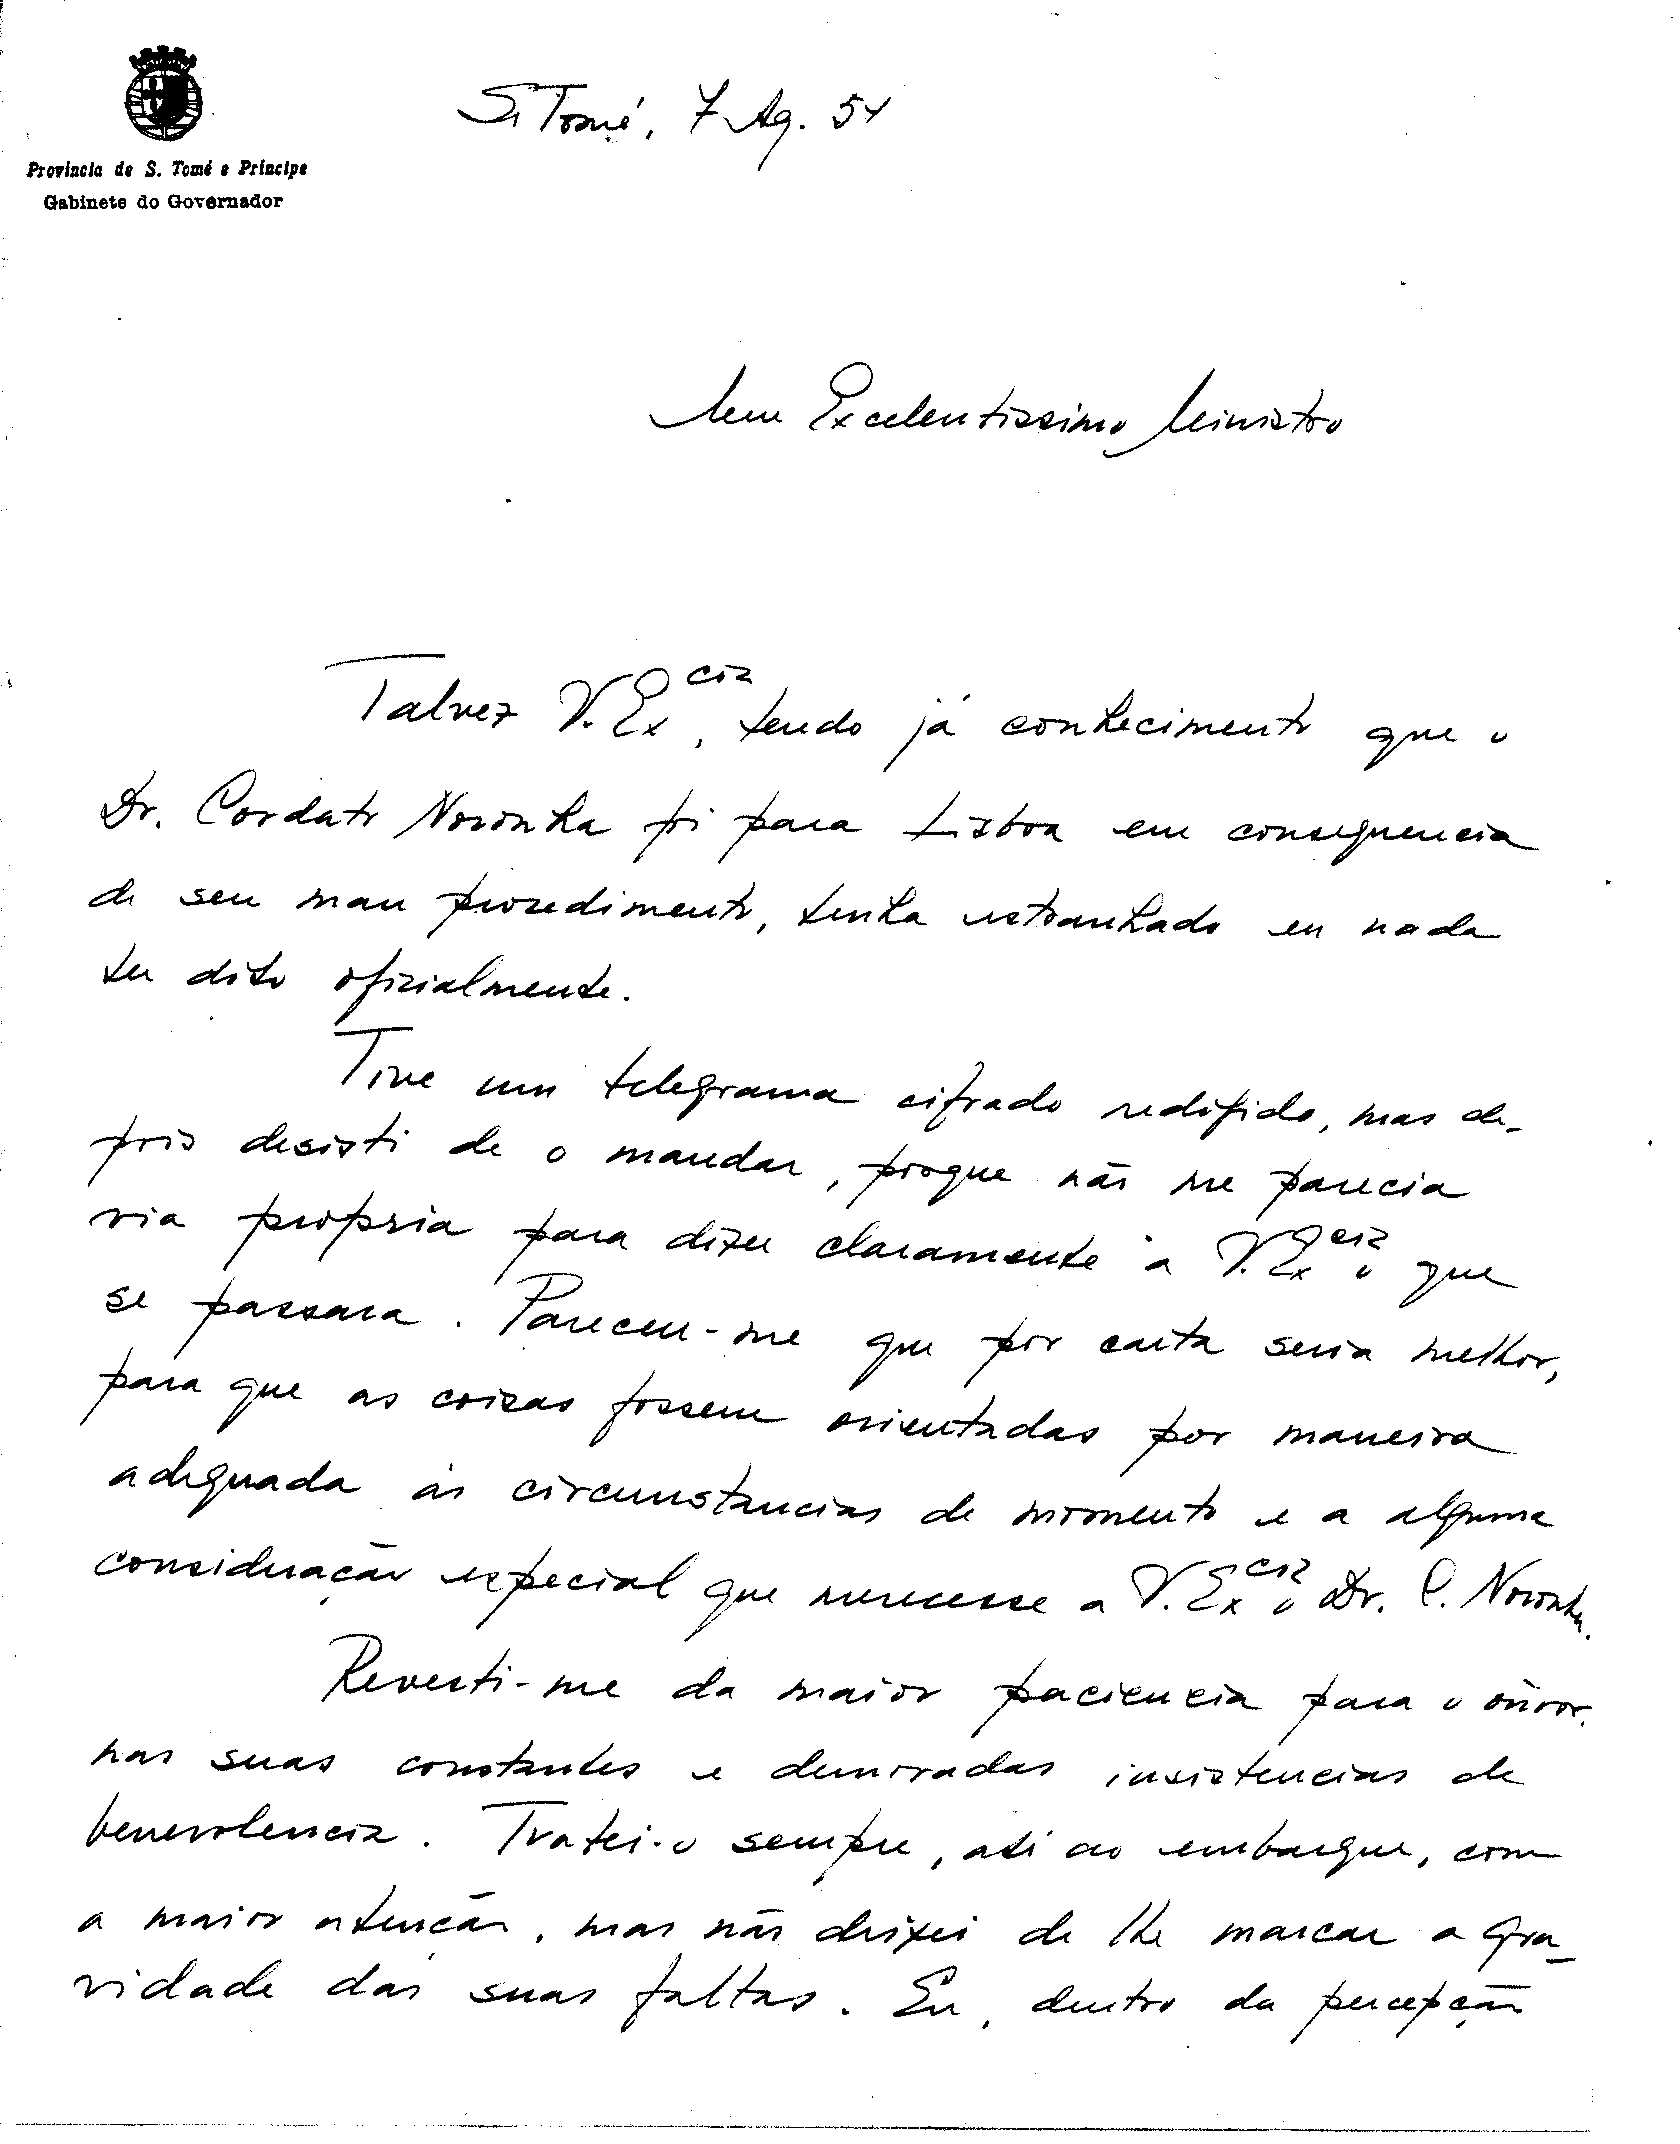 S. Tomé, 7 Ag. 54
Provincia de S. Tomé e Príncipe
Gabinete do Governador
Meu Excelentissimo Ministro
Talvez V. Excia, tendo já conhecimento que o
Dr. Cordato Noronha foi para Lisboa em consequencia
de seu mau procedimento, tenha estranhado eu nada
ter dito oficialmente.
Tive um telegrama cifrado redigido, mas de-
pois desisti de o mandar, porque não me parecia
via propria para dizer claramente a V. Excia o que
se passara. Pareceu-me que por carta seria melhor,
para que as coisas fossem orientadas por maneira
adequada ás circumstancias de momento e a alguma
consideração especial que merecesse a V. Excia o Dr. C. Noronha.
Revesti-me da maior paciencia para o ouvir
nas suas constantes e demoradas insistencias de
benevolencia. Tratei-o sempre, até ao embarque, com
a maior atenção, mas não deixei de lhe marcar a gra-
vidade das suas faltas. Eu, dentro da percepção